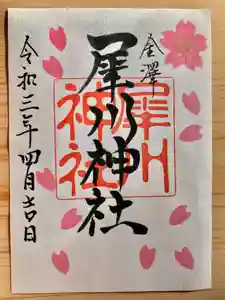 金澤
犀川神社
犀川神社
令和三年四月吉日